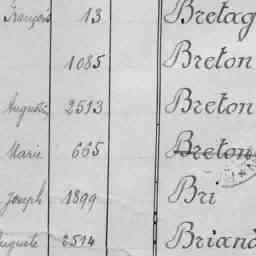 François 13 Bretag
1085 Breton
Augustin 2513 Breton
Marie 665 Breton
Joseph 1899 Bri
Auguste 2514 Briand